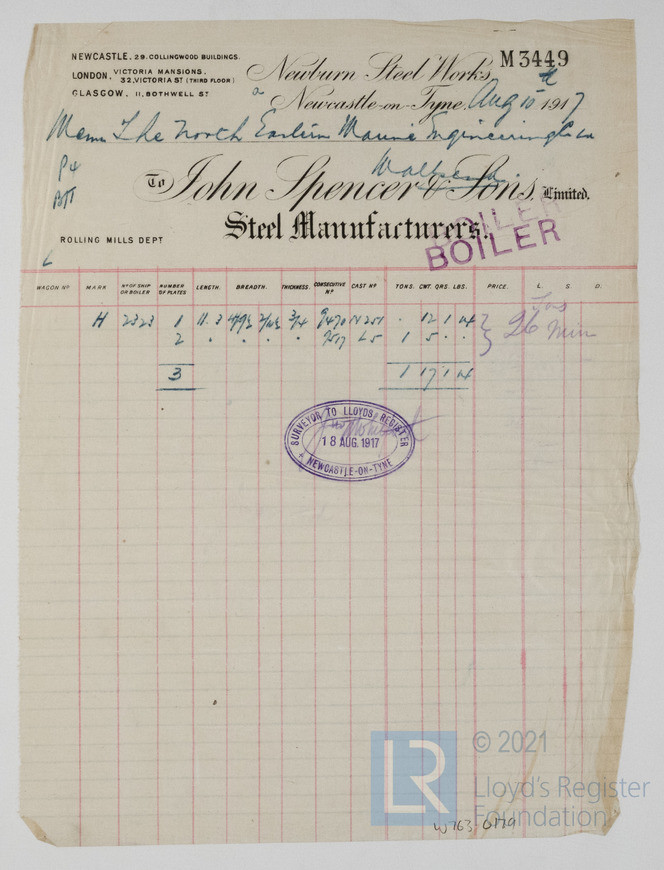 NEWCASTLE. 29. COLLINGWOOD BUILDINGS.
LONDON, VICTORIA MANSIONS. 32, VICTORIA ST (THIRD FLOOR)
GLASGOW, 11, BOTHWELL ST
M3449
Newburn Steel Works,
Newcastle-on-Tyne, Aug 15th 1917
The North Eastern Marine Engineering Co
Wallsend
To John Spencer & Sons, Limited.
Steel Manufacturers.
BOILER
BOILER
ROLLING MILLS DEPT
WAGON No MARK No OF SHIP OR BOILER NUMBER OF PLATES LENGTH. BREADTH. THICKNESS. CONSECUTIVE No CAST No TONS. CWT. QRS. LBS. PRICE. L. S. D.
H 2323 1 11.3 3/4 9470 12 1 14
2 " " " " 1 5 " "
26 Tons Min
3 1 17 1 14
SURVEYOR TO LLOYDS REGISTER
18 AUG. 1917
NEWCASTLE-ON-TYNE
LR
© 2021
Lloyd's Register
Foundation
W763-0179